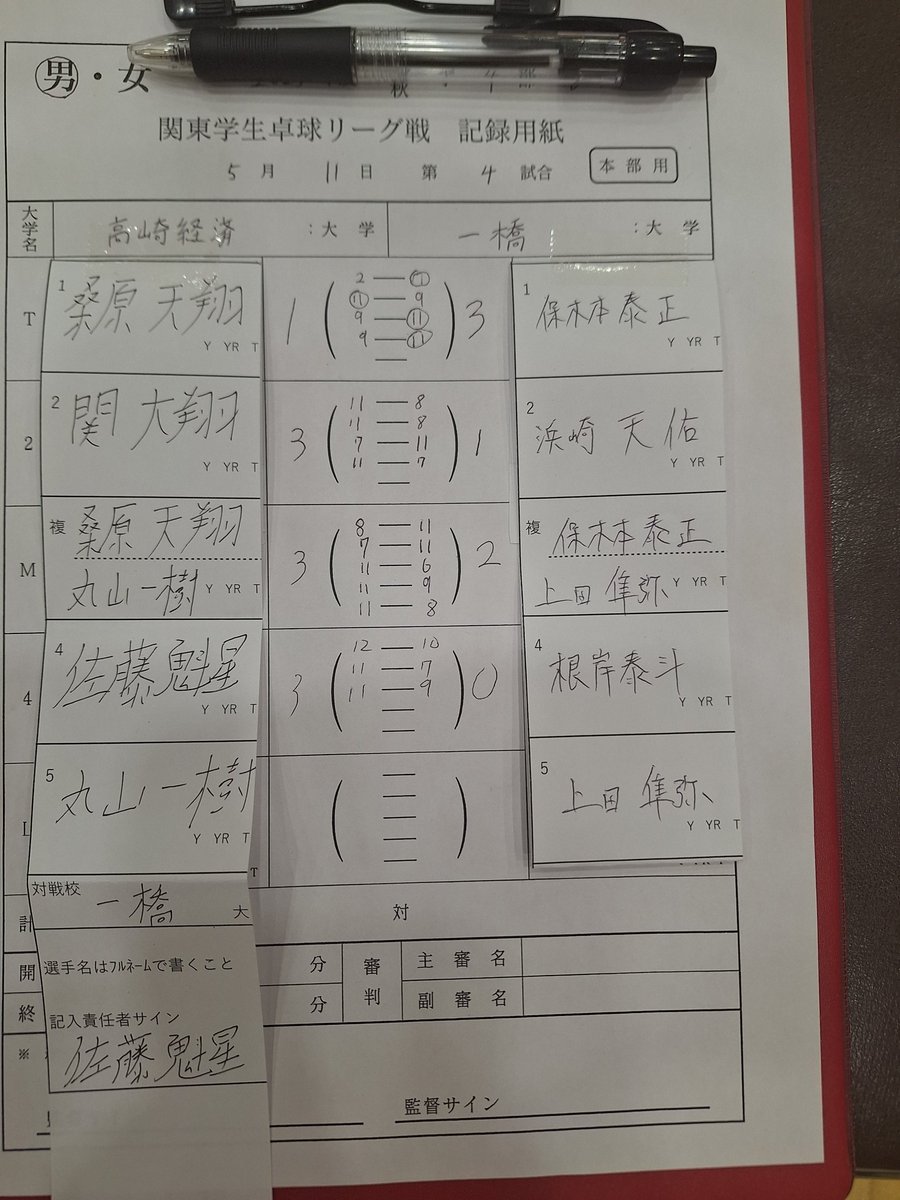 男・女
秋
関東学生卓球リーグ戦 記録用紙
5月 11日 第 4 試合 本部用
大学名 高崎経済 : 大学 一橋 : 大学
T 1 桑原 天翔 Y YR T 1 ( 2 — 11 ) 3 1 保木本泰正 Y YR T
11 — 9
9 — 11
9 — 11
2 2 関 大翔 Y YR T 3 ( 11 — 8 ) 1 2 浜崎 天佑 Y YR T
11 — 8
7 — 11
11 — 7
M 複 桑原 天翔 3 ( 8 — 11 ) 2 複 保木本泰正
丸山一樹 Y YR T 7 — 11 上田 隼弥 Y YR T
11 — 6
11 — 9
11 — 8
4 4 佐藤魁星 Y YR T 3 ( 12 — 10 ) 0 4 根岸泰斗 Y YR T
11 — 7
11 — 9
L 5 丸山一樹 Y YR T ( ) 5 上田 隼弥 Y YR T
対戦校 一橋 大
計 対
開 分 審判 主審名
終 分 副審名
選手名はフルネームで書くこと
記入責任者サイン
佐藤魁星
※
監督サイン